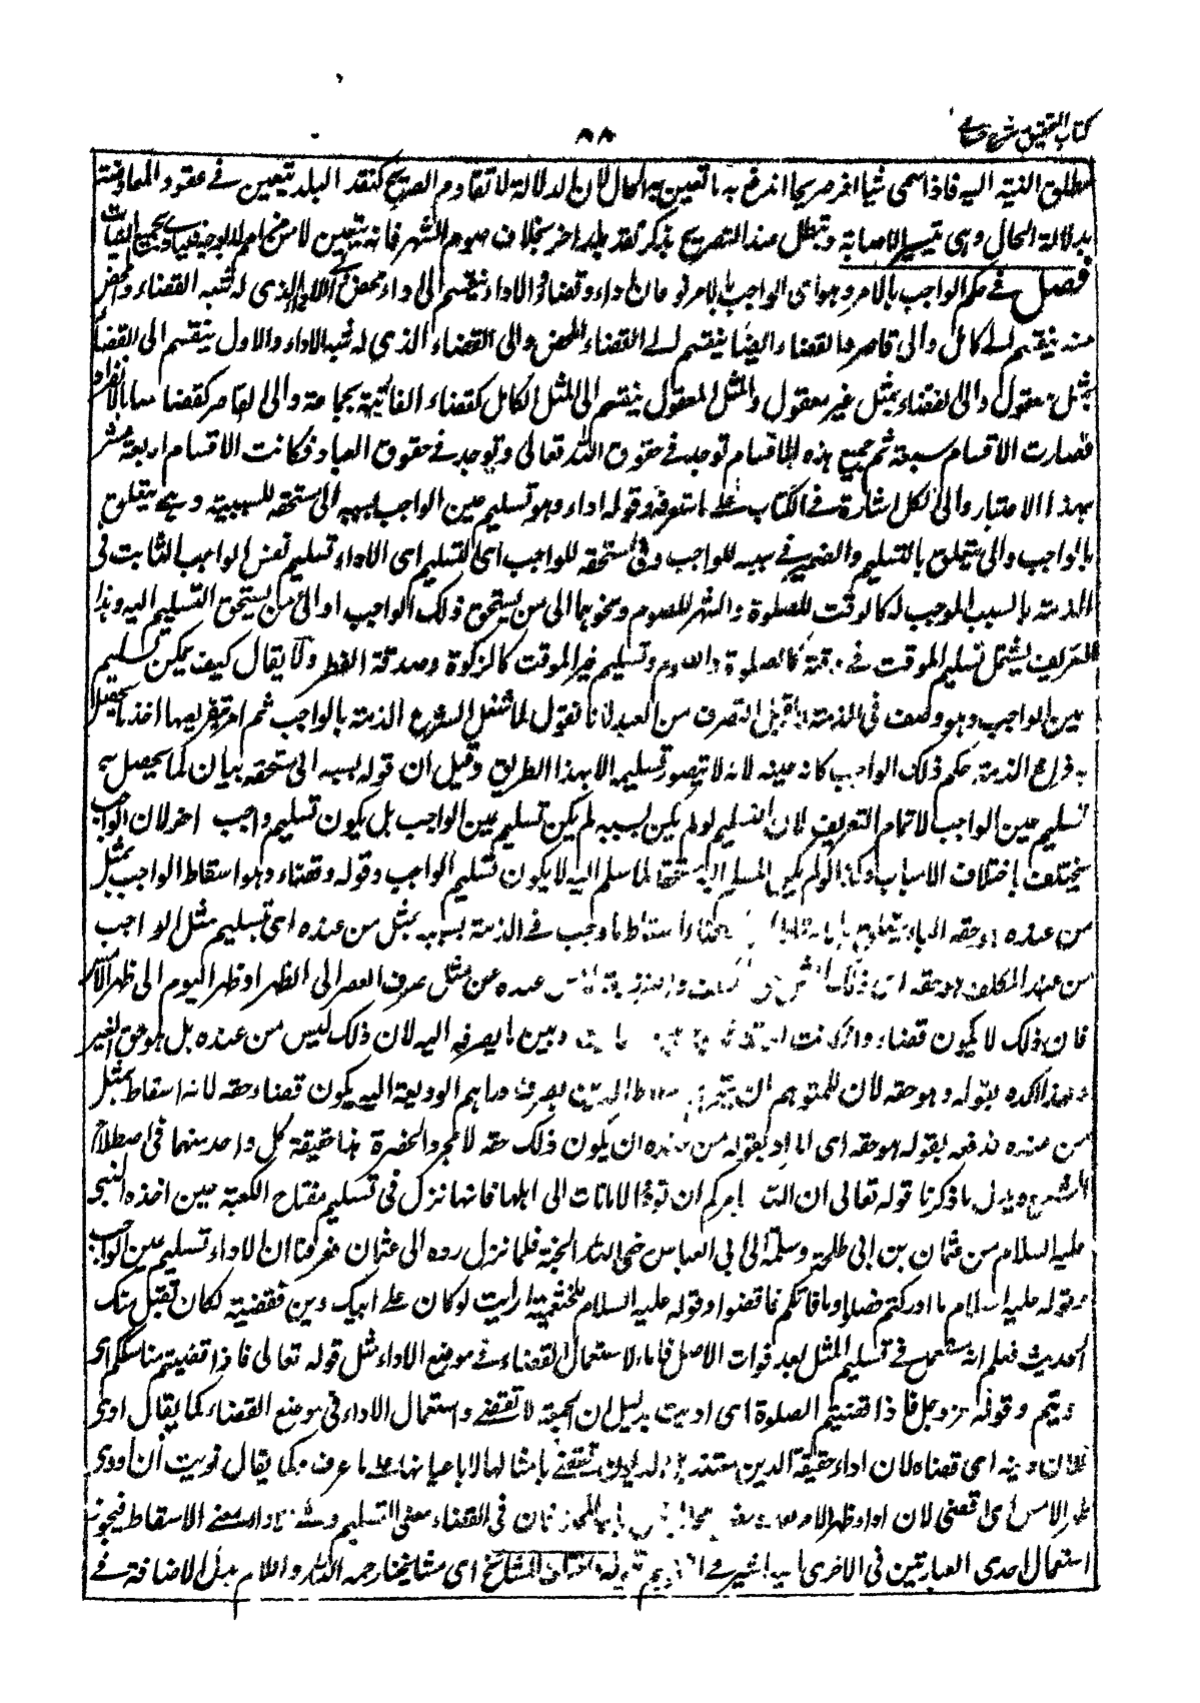 كتاب التحقيق شرح حسامى
٨٨
مطلق النية اليه فاذا سمى شيئا اخر صريحا اندفع به ما تعين به الحال لان الدلالة لا تقاوم الصريح كنقد البلد يتعين فى عقود المعاوضة
بدلالة الحال وهى تيسير الاصابة وتبطل عند التصريح بذكر نقد بلد اخر بخلاف صوم الشهر فانه يتعين لا من
فصل فى حكم الواجب بالامر وهو اى الواجب بالامر نوعان اداء وقضاء والاداء ينقسم الى اداء محض والى الاداء الذى له شبه القضاء والمحض
منه ينقسم الى كامل والى قاصر والقضاء ايضا ينقسم الى القضاء المحض والى القضاء الذى له شبه الاداء والاول ينقسم الى القضاء
بمثل معقول والى القضاء بمثل غير معقول والمثل المعقول ينقسم الى المثل الكامل كقضاء الفائتة بجماعة والى القاصر كقضاءها بالانفراد
فصارت الاقسام سبعة ثم جميع هذه الاقسام توجد فى حقوق الله تعالى وتوجد فى حقوق العباد فكانت الاقسام اربعة عشر
بهذا الاعتبار والى الكل اشارة فى الكتاب على ما ستعرفه وقوله اداء وهو تسليم عين الواجب بسببه الى مستحقه للسببية وهى يتعلق
بالواجب والى يتعلق بالتسليم والضمير فى سببه للواجب وفى مستحقه للواجب اى التسليم اى الاداء تسليم نفس الواجب الثابت فى
الذمة بالسبب الموجب له كالوقت للصلوة والشهر للصوم ونحوهما الى من يستحق ذلك الواجب او الى من يستحق التسليم اليه وهذا
التعريف يشمل تسليم الموقت فى وقته كالصلوة والصوم وتسليم غير الموقت كالزكوة وصدقة الفطر ولا يقال كيف يمكن تسليم
عين الواجب وهو وصف فى الذمة لا يقبل التصرف من العبد لانا نقول لما شغل الشرع الذمة بالواجب ثم امر بتفريغها اخذ ما يحصل
به فراغ الذمة حكم ذلك الواجب كانه عينه لانه لا يتصور تسليمه الا بهذا الطريق وقيل ان قوله بسببه الى مستحقه بيان لما يحصل به
تسليم عين الواجب لا تمام التعريف لان التسليم لو لم يكن بسببه لم يكن تسليم عين الواجب بل يكون تسليم واجب اخر لان الواجب
يختلف باختلاف الاسباب وكذا لو لم يكن المسلم اليه مستحقا لما سلم اليه لا يكون تسليم الواجب وقوله وقضاء وهو اسقاط الواجب بمثل
من عنده هو حقه الباء يتعلق باسقاط اسقاط ما وجب فى الذمة بسببه بمثل من عنده اى تسليم مثل الواجب
من عند المكلف هو حقه اى ذلك من عنده عن مثل صرف العصر الى الظهر او ظهر اليوم الى ظهر الامس
فان ذلك لا يكون قضاء وان كانت وبين ما يصرفه اليه لان ذلك ليس من عنده بل هو حق الغير
وهذا اكده بقوله وهو حقه لان للمتوهم ان الدين بصرف دراهم الوديعة اليه يكون قضاء حقه لانه اسقاط بمثل
من عنده فدفعه بقوله هو حقه اى المراد بقوله من عنده ان يكون ذلك حقه لا مجرد الحضرة هذا حقيقة كل واحد منهما فى اصطلاح
الشرع ويدل ما ذكرنا قوله تعالى ان الله يامركم ان تؤدوا الامانات الى اهلها فانها نزل فى تسليم مفتاح الكعبة حين اخذه النبى
عليه السلام من عثمان بن ابى طلحة وسلمه الى العباس رضى الله فلما نزل رده الى عثمان فعرفنا ان الاداء تسليم عين الواجب
وقوله عليه السلام ما ادركتم فصلوا وما فاتكم فاقضوا وقوله عليه السلام للخثعمية ارايت لو كان على ابيك دين فقضيته اكان تقبل منك
الحديث فعلم انه مستعمل فى تسليم المثل بعد فوات الاصل فاما استعمال القضاء فى موضع الاداء مثل قوله تعالى فاذا قضيتم مناسككم اى
اديتم وقوله عز وجل فاذا قضيتم الصلوة اى اديت بدليل ان الجمعة لا تقضى واستعمال الاداء فى موضع القضاء كما يقال ادى
فلان دينه اى قضاه لان اداء حقيقة الدين متعذر بل الديون تقضى بامثالها لا باعيانها على ما عرف وكما يقال نويت ان اؤدى
ظهر الامس اى اقضى لان اداء ظهر الامس لان فى القضاء معنى التسليم وفى الاداء معنى الاسقاط فيجوز
استعمال احدى العبارتين فى الاخرى اليه اشير فى التقويم قوله واختلف المشائخ اى مشايخنا رحمهم الله واللام بدل الاضافة فى